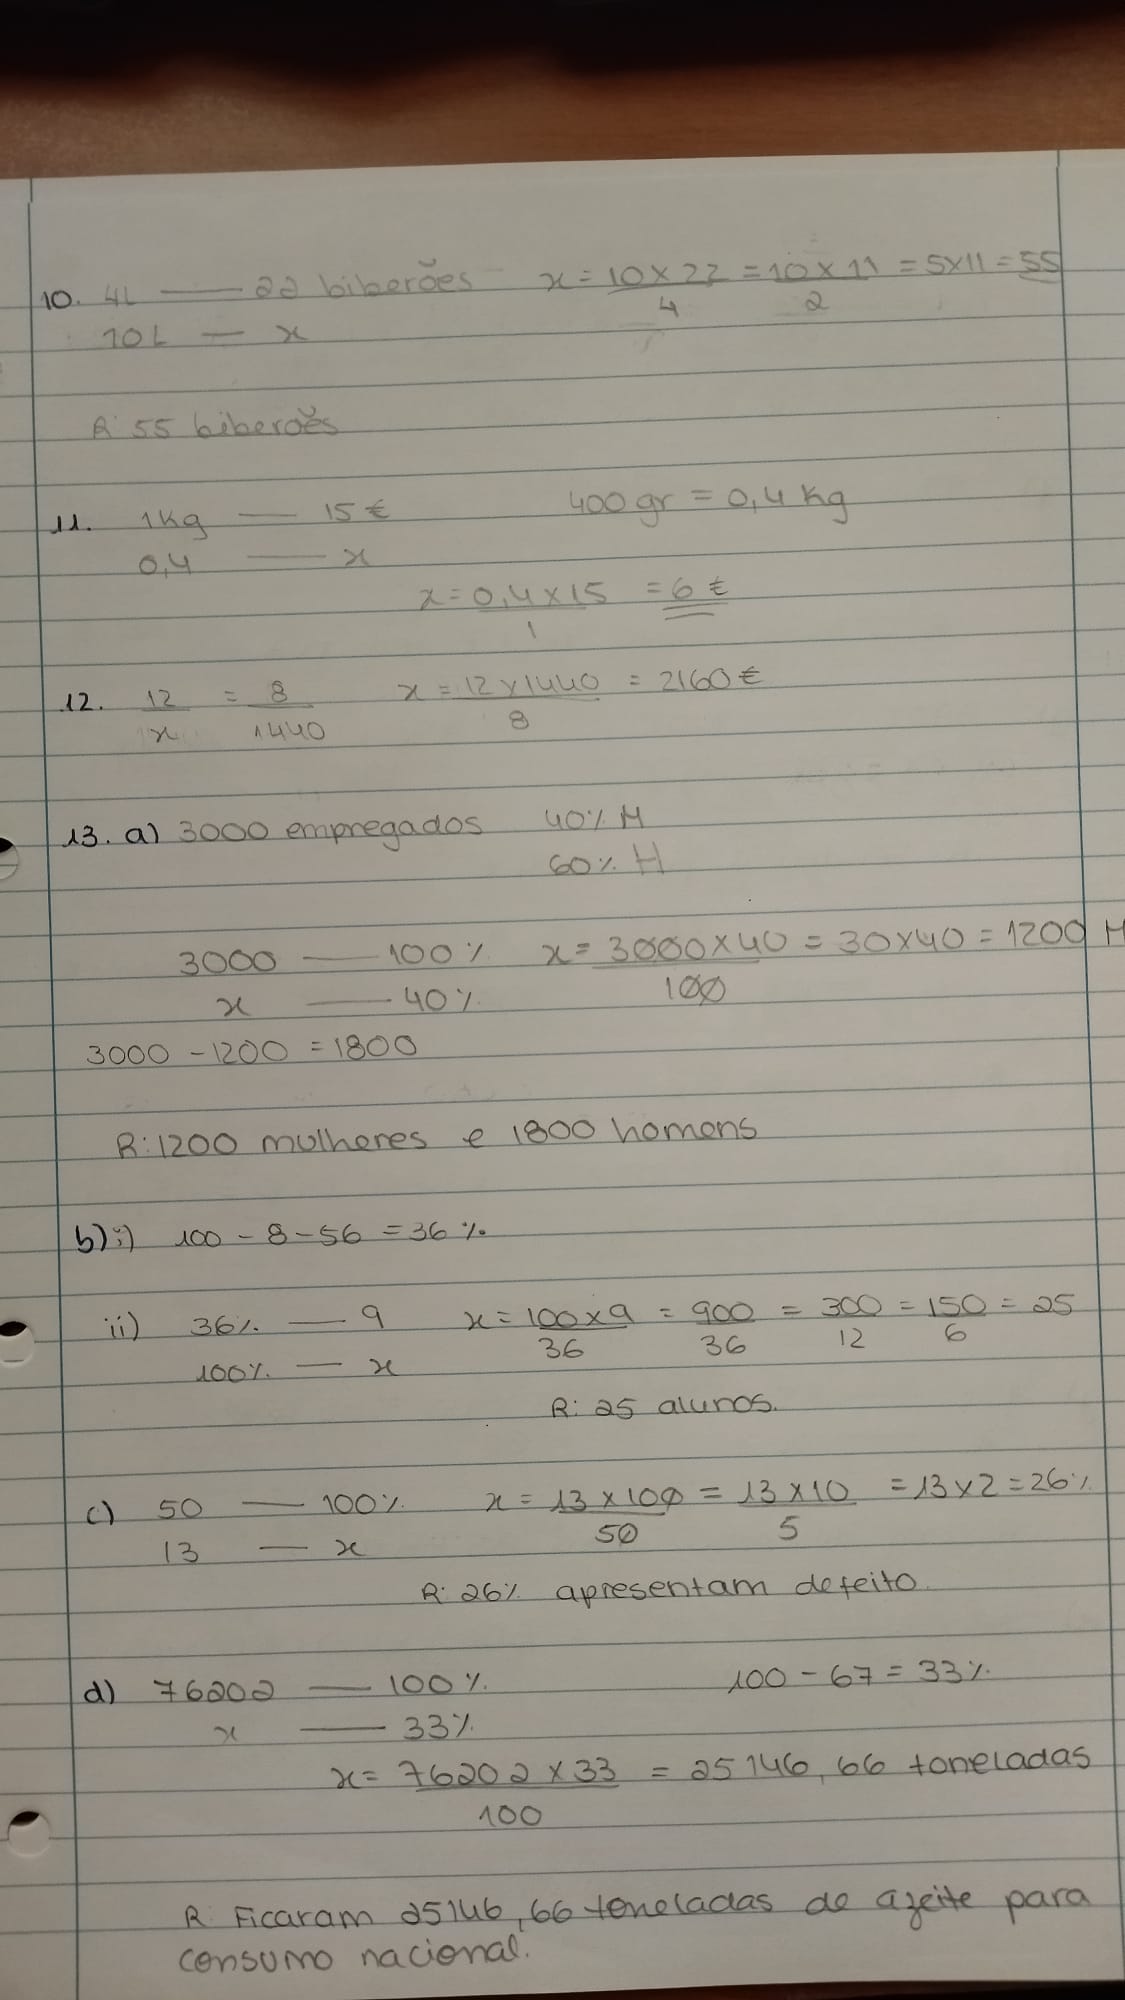 10. 4L — 22 biberões x = 10 x 22 / 4 = 10 x 11 / 2 = 5x11 = 55
10L — x
R: 55 biberões
11. 1Kg — 15€ 400gr = 0,4 Kg
0,4 — x
x = 0,4 x 15 / 1 = 6€
12. 12 / x = 8 / 1440 x = 12 x 1440 / 8 = 2160€
13. a) 3000 empregados 40% M
60% H
3000 — 100% x = 3000 x 40 / 100 = 30x40 = 1200 M
x — 40%
3000 - 1200 = 1800
R: 1200 mulheres e 1800 homens
b) i) 100 - 8 - 56 = 36%
ii) 36% — 9 x = 100 x 9 / 36 = 900 / 36 = 300 / 12 = 150 / 6 = 25
100% — x
R: 25 alunos.
c) 50 — 100% x = 13 x 100 / 50 = 13 x 10 / 5 = 13 x 2 = 26%
13 — x
R: 26% apresentam defeito.
d) 76202 — 100% 100 - 67 = 33%
x — 33%
x = 76202 x 33 / 100 = 25146,66 toneladas
R: Ficaram 25146,66 toneladas de azeite para
consumo nacional.